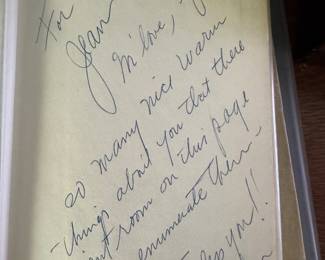 For
Jean
in love,
so many nice warm
things about you that there
room on this page
enumerate them –
you!!